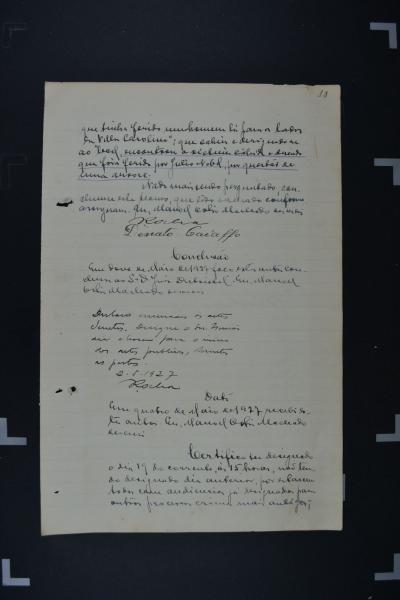 18
que tinha ferido um homem lá para os lados
da Villa Carolino"; que sahiu e dirigindo-se
ao local, encontrou a victima
que fôra ferido por Julio Nobl, por questões de
uma arvore.
Nada mais sendo perguntado,
este termo, que lido e achado conforme
assignam. Eu, Manoel Machado, escrivão
Rocha
Donato Caiaffo
Conclusão
Em dois de Maio de 1927 faço estes autos con
clusos ao S. D. Juiz Eu, Manoel
Machado escrivão
Declaro encerrados os actos
Designe o Sr. Escrivão
dia e hora para o inicio
dos actos publicos, scientes
as partes.
2-5-1927
Rocha
Data
Em quatro de Maio de 1927 recebi es
tes autos. Eu, Manoel Machado
escrivão
Certifico ser designado
o dia 19 do corrente, ás 15 horas, não ten
do designado dia anterior, por estarem
todos com audiencias já designadas para
outros processos crimes mais antigos;